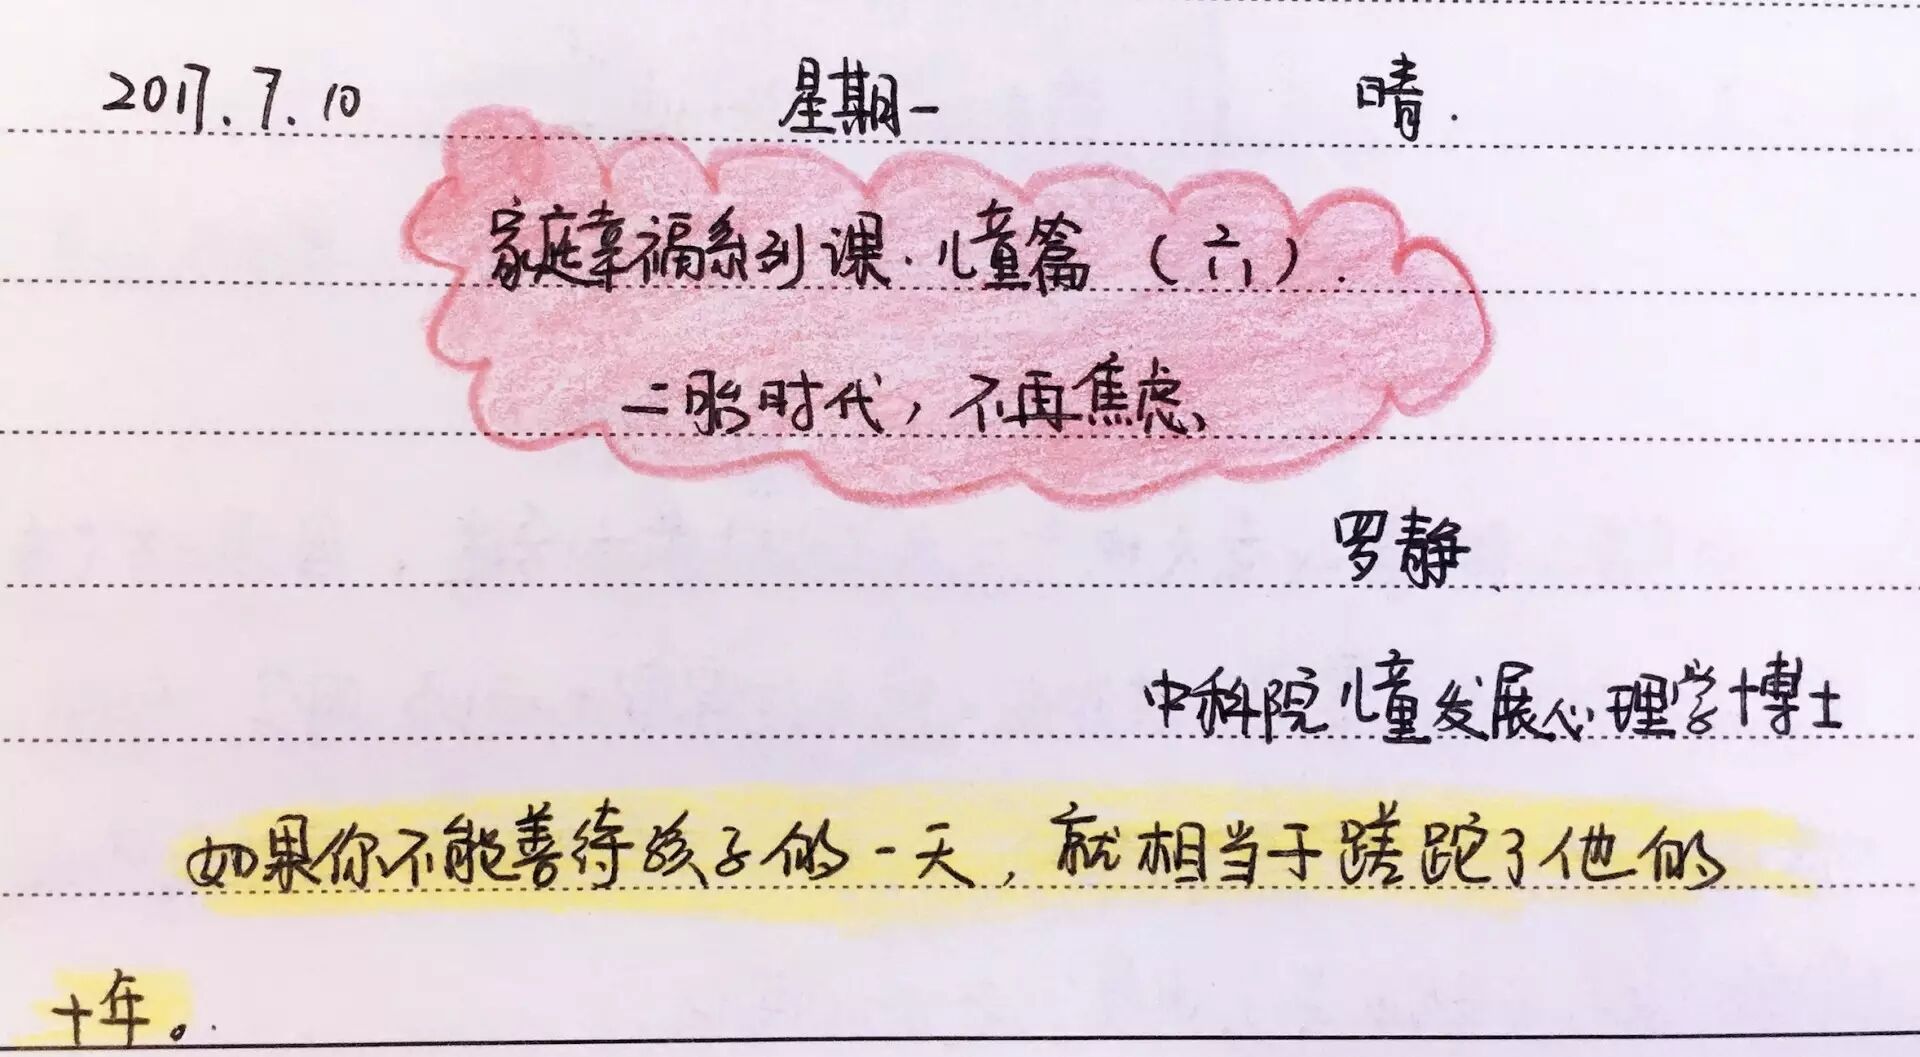 2017.7.10 星期一 晴.
家庭幸福系列课·儿童篇（六）.
二胎时代，不再焦虑、
罗静
中科院儿童发展心理学博士
如果你不能善待孩子的一天，就相当于蹉跎了他的
十年。